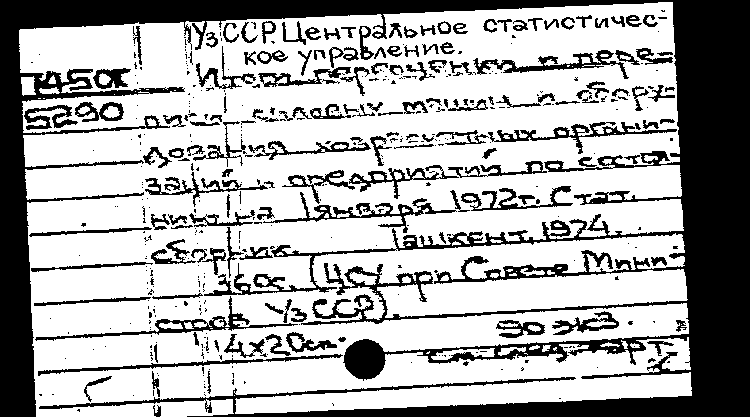 УзССР. Центральное статистичес-
кое управление.
Итоги переоценки и пере-
5290 писи силовых машин и обору-
дования хозрасчетных органи-
заций и предприятий по состоя-
нию на 1 января 1972г. Стат.
сборник. Ташкент, 1974.
360с. (ЦСУ при Совете Мини-
стров УзССР).
14х20см. 90 экз.
см. след. карт.